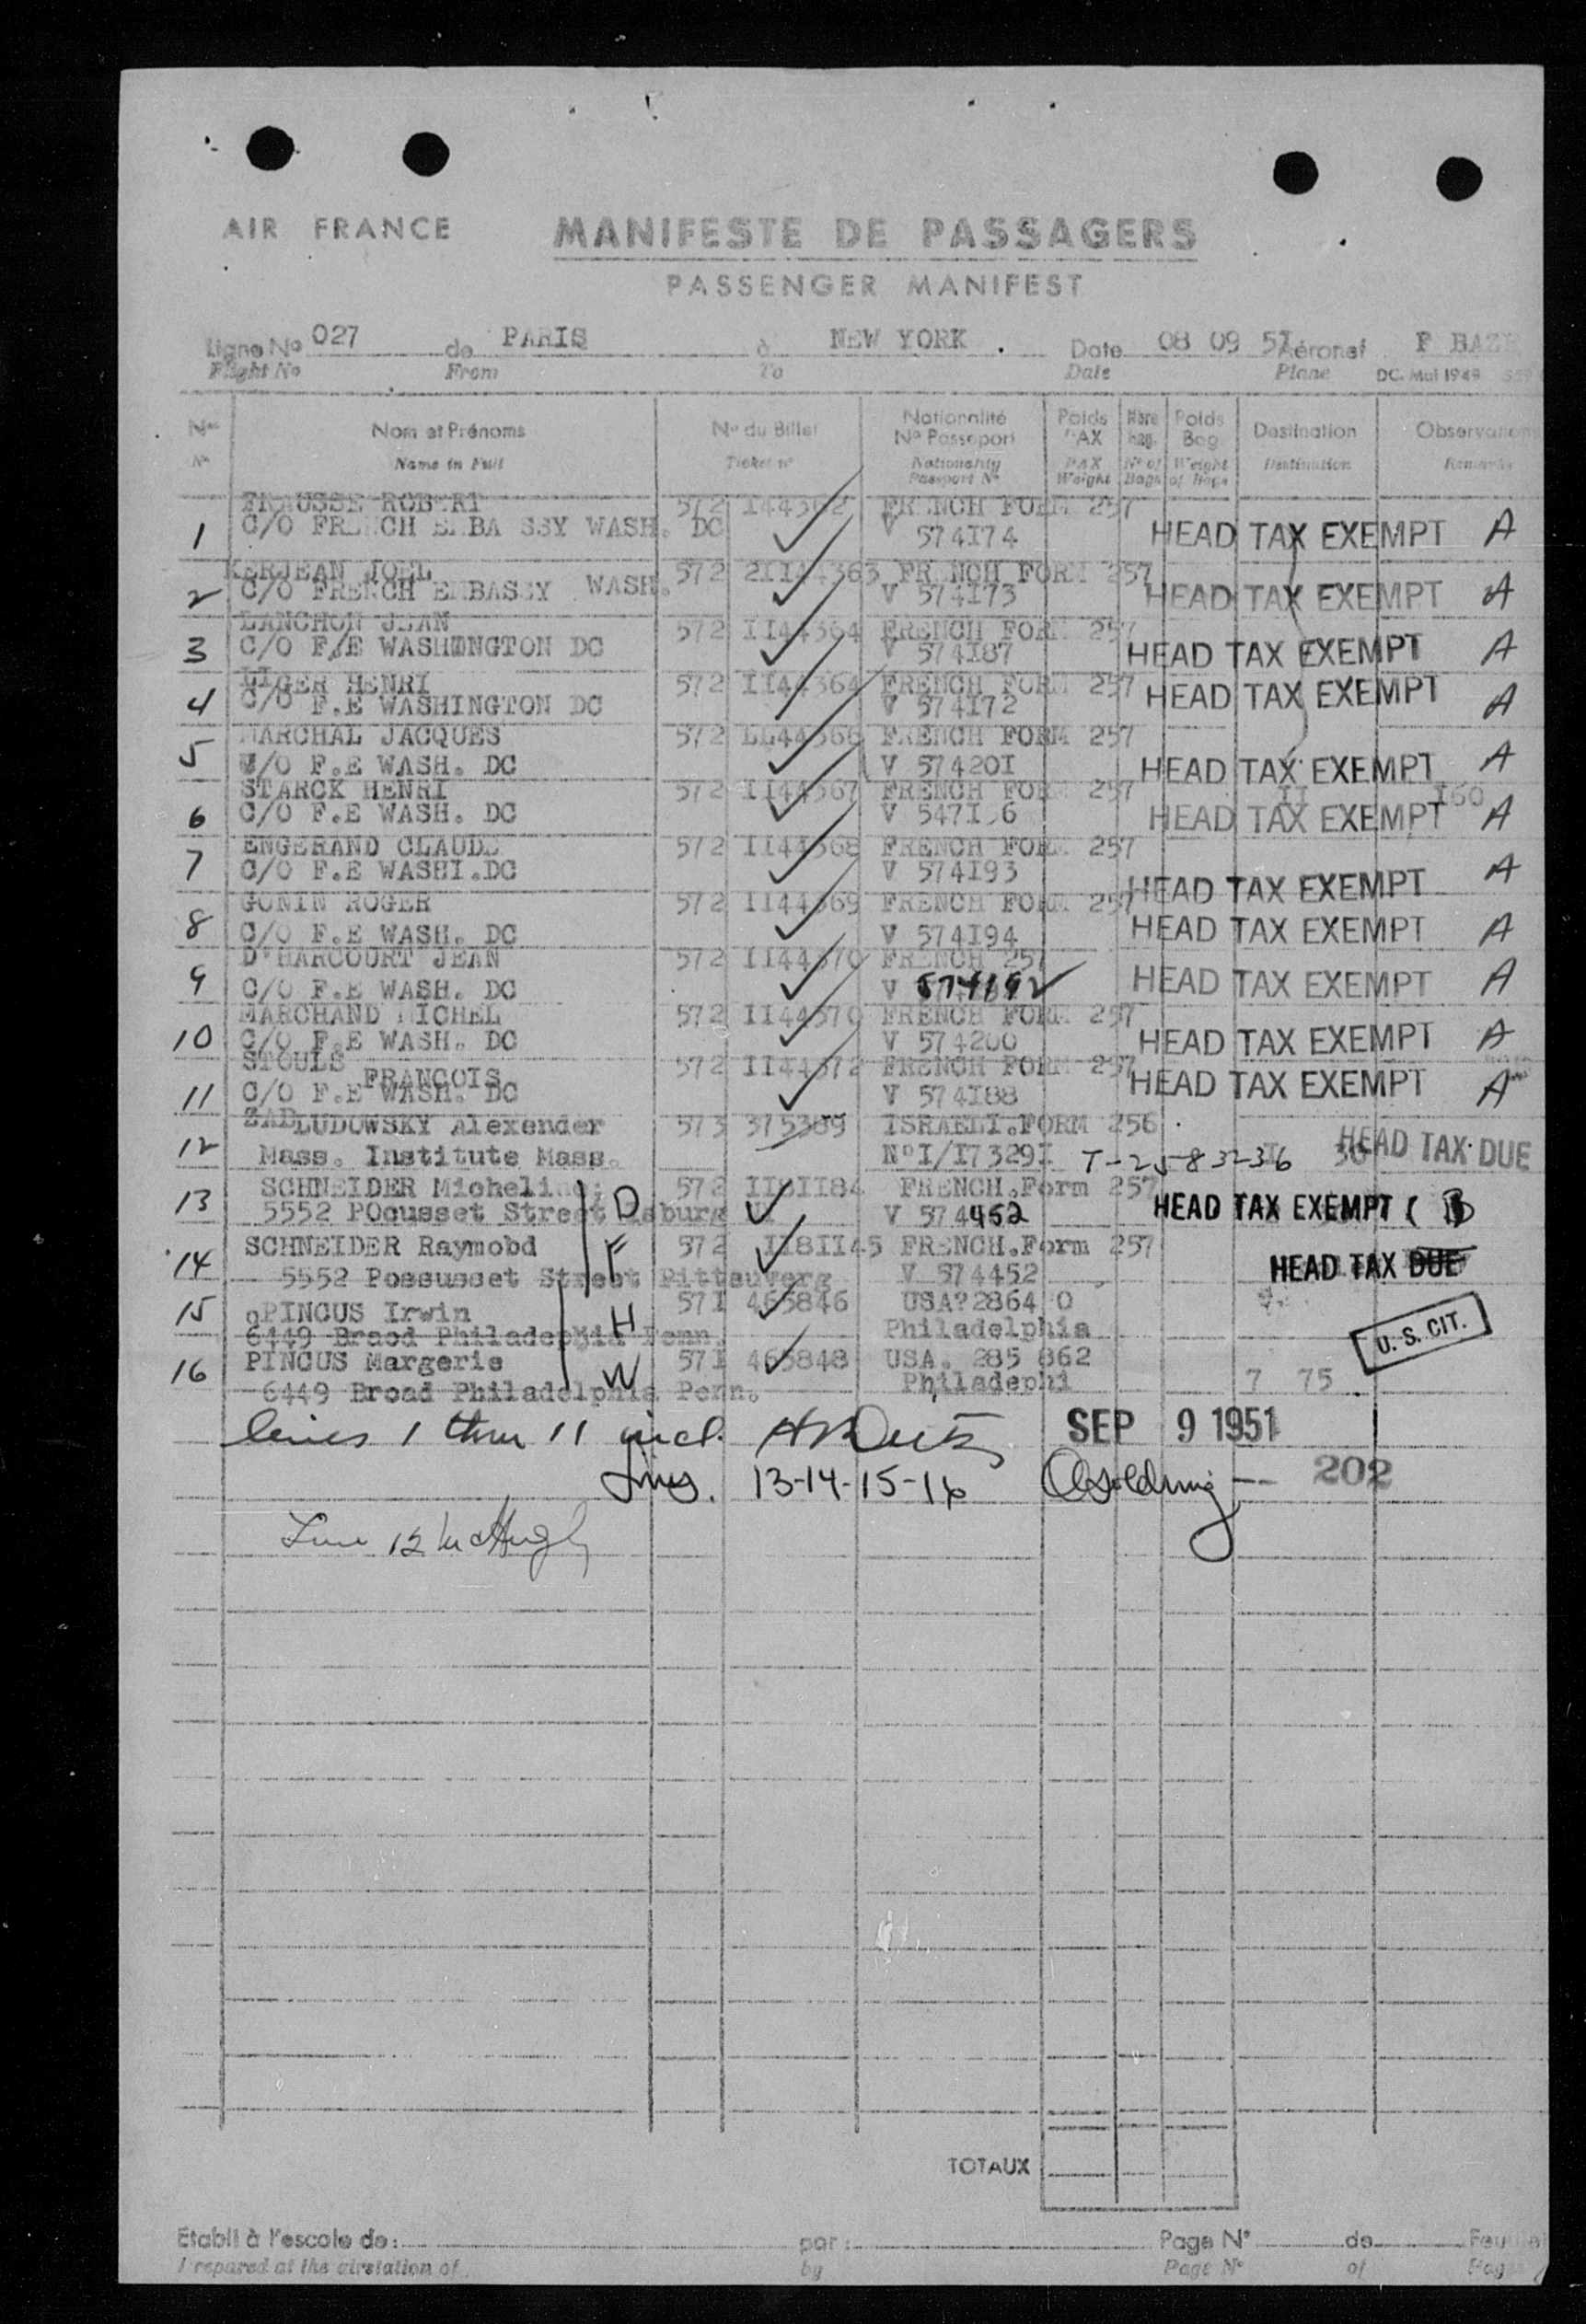 AIR FRANCE MANIFESTE DE PASSAGERS
PASSENGER MANIFEST
Ligne No 027 de PARIS à NEW YORK . Date 08 09 51 Aéronef F BAZ
Flight No From To Date Plane DC. Mai 1949
Nos Nom et Prénoms No du Billet Nationalité No Passeport Poids PAX Nbre bag. Poids Bag Destination Observations
No Name in Full Ticket no Nationality Passport No PAX Weight No of Bags Weight of Bags Destination Remarks
ROBERT 572 FRENCH FORM 257
1 C/O FRENCH EMBA SSY WASH. DC V 574174 HEAD TAX EXEMPT A
KERJEAN JOEL 572 2II44363 FRENCH FORM 257
2 C/O FRENCH EMBASSY WASH. V 574I73 HEAD TAX EXEMPT A
LANCHON JEAN 572 II44364 FRENCH FORM 257
3 C/O F/E WASHINGTON DC V 574I87 HEAD TAX EXEMPT A
LIGER HENRI 572 II44364 FRENCH FORM 257
4 C/O F.E WASHINGTON DC V 574I72 HEAD TAX EXEMPT A
MARCHAL JACQUES 572 LL44366 FRENCH FORM 257
5 C/O F.E WASH. DC V 57420I HEAD TAX EXEMPT A
STARCK HENRI 572 II44367 FRENCH FORM 257 II I60
6 C/O F.E WASH. DC HEAD TAX EXEMPT A
ENGERAND CLAUDE 572 II44368 FRENCH FORM 257
7 C/O F.E WASHI.DC V 574I93 HEAD TAX EXEMPT A
GONIN ROGER 572 II44369 FRENCH FORM 257
8 C/O F.E WASH. DC V 574I94 HEAD TAX EXEMPT A
D'HARCOURT JEAN 572 II44370 FRENCH 257
9 C/O F.E WASH. DC V 574192 HEAD TAX EXEMPT A
MARCHAND MICHEL 572 II44370 FRENCH FORM 257
10 C/O F.E WASH. DC V 574200 HEAD TAX EXEMPT A
STOULS FRANCOIS 572 II44372 FRENCH FORM 257
11 C/O F.E WASH. DC V 574I88 HEAD TAX EXEMPT A
ZABLUDOWSKY Alexender 573 375389 ISRAELI.FORM 256
12 Mass. Institute Mass. NoI/I7329I T-258 32-36 HEAD TAX DUE
SCHNEIDER Micheline; 572 II8II84 FRENCH.Form 257
13 5552 POcusset Street D V 574452 HEAD TAX EXEMPT ( B
14 SCHNEIDER Raymobd F 572 II8II45 FRENCH.Form 257
5552 Possusset Street Pittsuverg V 574452 HEAD TAX DUE
15 PINCUS Irwin H 57I 465846 USA?2864 0
6449 Braod Philadephia Penn. Philadelphia U. S. CIT.
16 PINCUS Margerie W 57I 465848 USA. 285 862
6449 Broad Philadelphia Penn. Philadephi 7 75
lines 1 thru 11 incl. SEP 9 1951
Lines. 13-14-15-16 202
Line 12 McHugh
TOTAUX
Etabli à l'escale de: par: Page No de
Prepared at the airstation of by Page No of